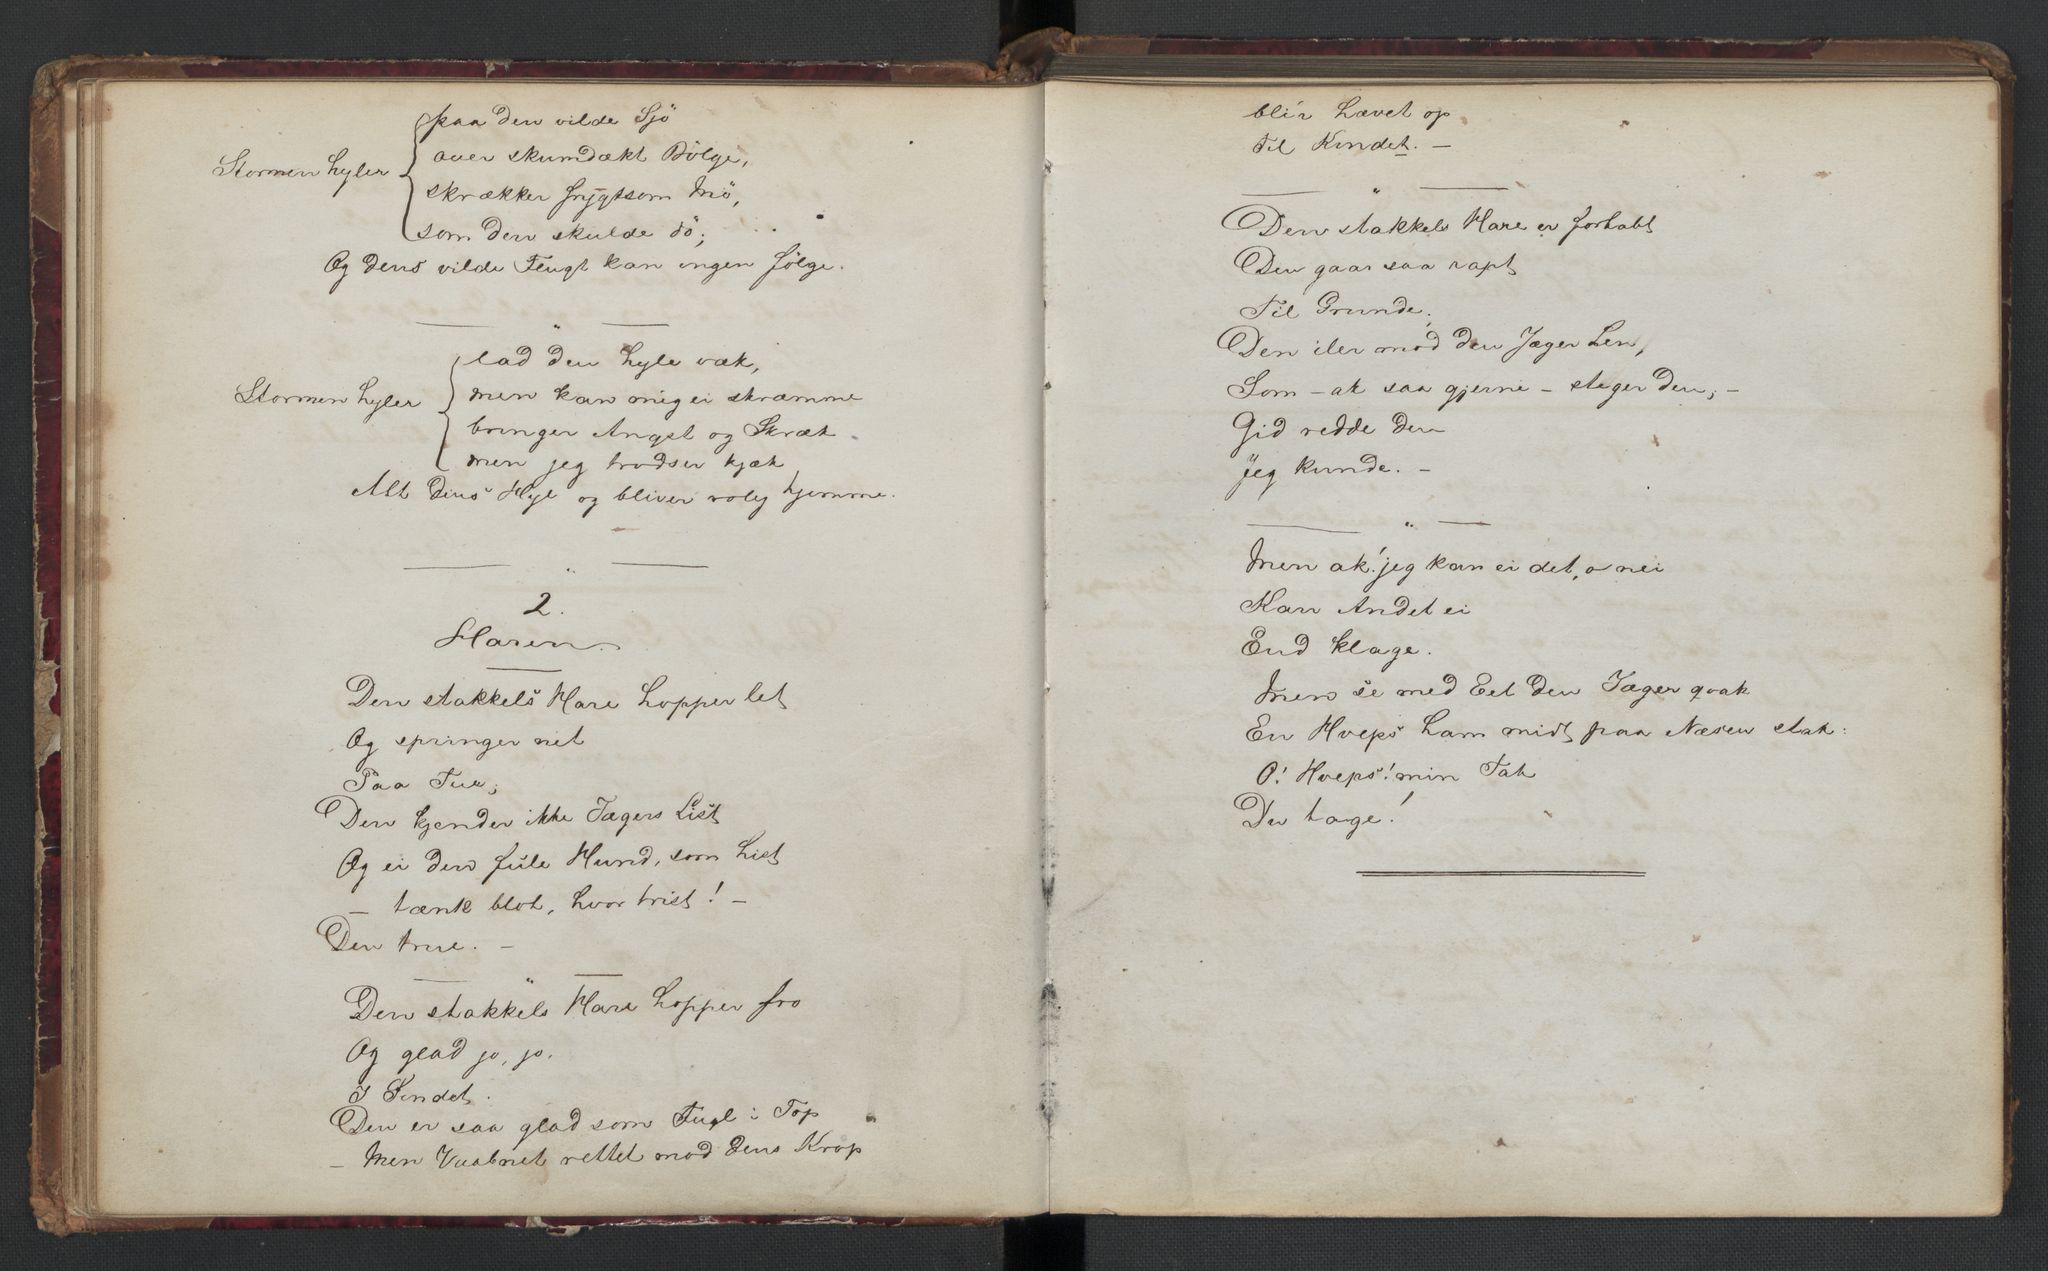 paa den vilde Sjö
over skumdækt Bölge,
Stormen hyler
skrækker frygtsom Mö,
som den skulde dö;
Og dens vilde Flugt kan ingen fölge.
lad den hyle væk,
Stormen hyler
men kan mig ei skræmme
bringer Angst og Skræk
men jeg trodser kjæk
Alt dens Hyl og bliver rolig hjemme.
2.
Haren.
Den stakkels Hare hopper let
Og springer net
Paa Tue;
Den kjender ikke Jægers List
Og ei den fule Hund, som hist
— tænk blot, hvor trist! —
Den true. —
Den stakkels Hare hopper fro
Og glad jo, jo.
I Sindet.
Den er saa glad som Fugl i Top
— Men Vaabnet rettet mod dens Krop
blir hævet op
Til Kindet. —
Den stakkels Hare er fortabt
Den gaar saa rapt
Til Grunde,
Den iler mod den Jæger hen,
Som – ak saa gjerne – steger den; –
Gid redde den
Jeg kunde. –
Men ak! jeg kan ei det, o nei
Kan Andet ei
End klage.
Men se med Eet den Jæger qvak
En Hveps ham midt paa Næsen stak:
O! Hveps! min Tak
Du tage!